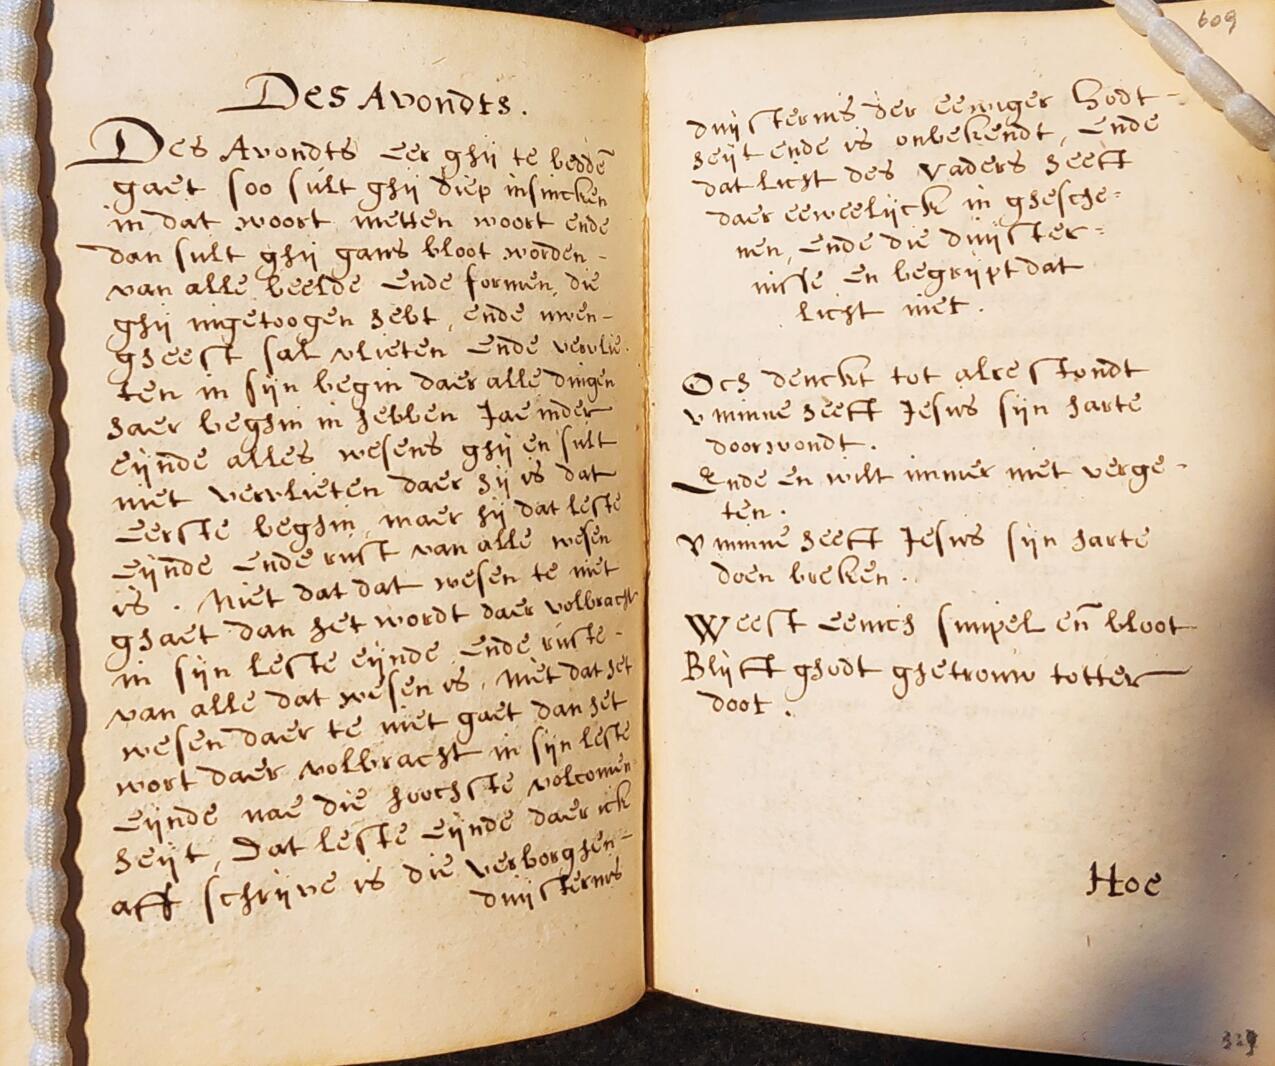 Des Avondts.
Des Avondts eer ghij te beddē
gaet soo sult ghij diep insincken
in dat woort metten woort ende
dan sult ghij gans bloot worden -
van alle beelde ende formen, die
ghij ingetoogen hebt, ende uwen -
gheest sal vlieten ende vervlie-
ten in sijn begin daer alle dingen
haer beghin in hebben Jae inder
eijnde alles wesens ghij en sult
niet vervlieten daer hij is dat
eerste beghin, maer hij dat leste
eijnde ende rust van alle wesen
is. Niet dat dat wesen te niet
ghaet dan het wordt daer volbracht
in sijn leste eijnde, ende ruste -
van alle dat wesen is, Niet dat het
wesen daer te niet gaet dan het
wort daer volbracht in sijn leste
eijnde nae die hoochste volcomen
heijt, Dat leste eijnde daer ick
aff schrijve is die verborghen -
duijsternis
609
duijsternis der eewiger Godt -
heijt ende is onbekendt, ende
dat licht des Vaders heeft
daer eeweelijck in ghesche=
nen, ende die duijster=
nisse en begrijpt dat
licht niet.
Och denckt tot alre stondt
v minne heeft Jesus sijn harte
doorwondt.
Ende en wilt immer niet verge -
ten.
V minne heeft Jesus sijn harte
doen breken.
Weest eenich simpel en̄ bloot
Blijft ghodt ghetrouw totter
doot.
Hoe
329